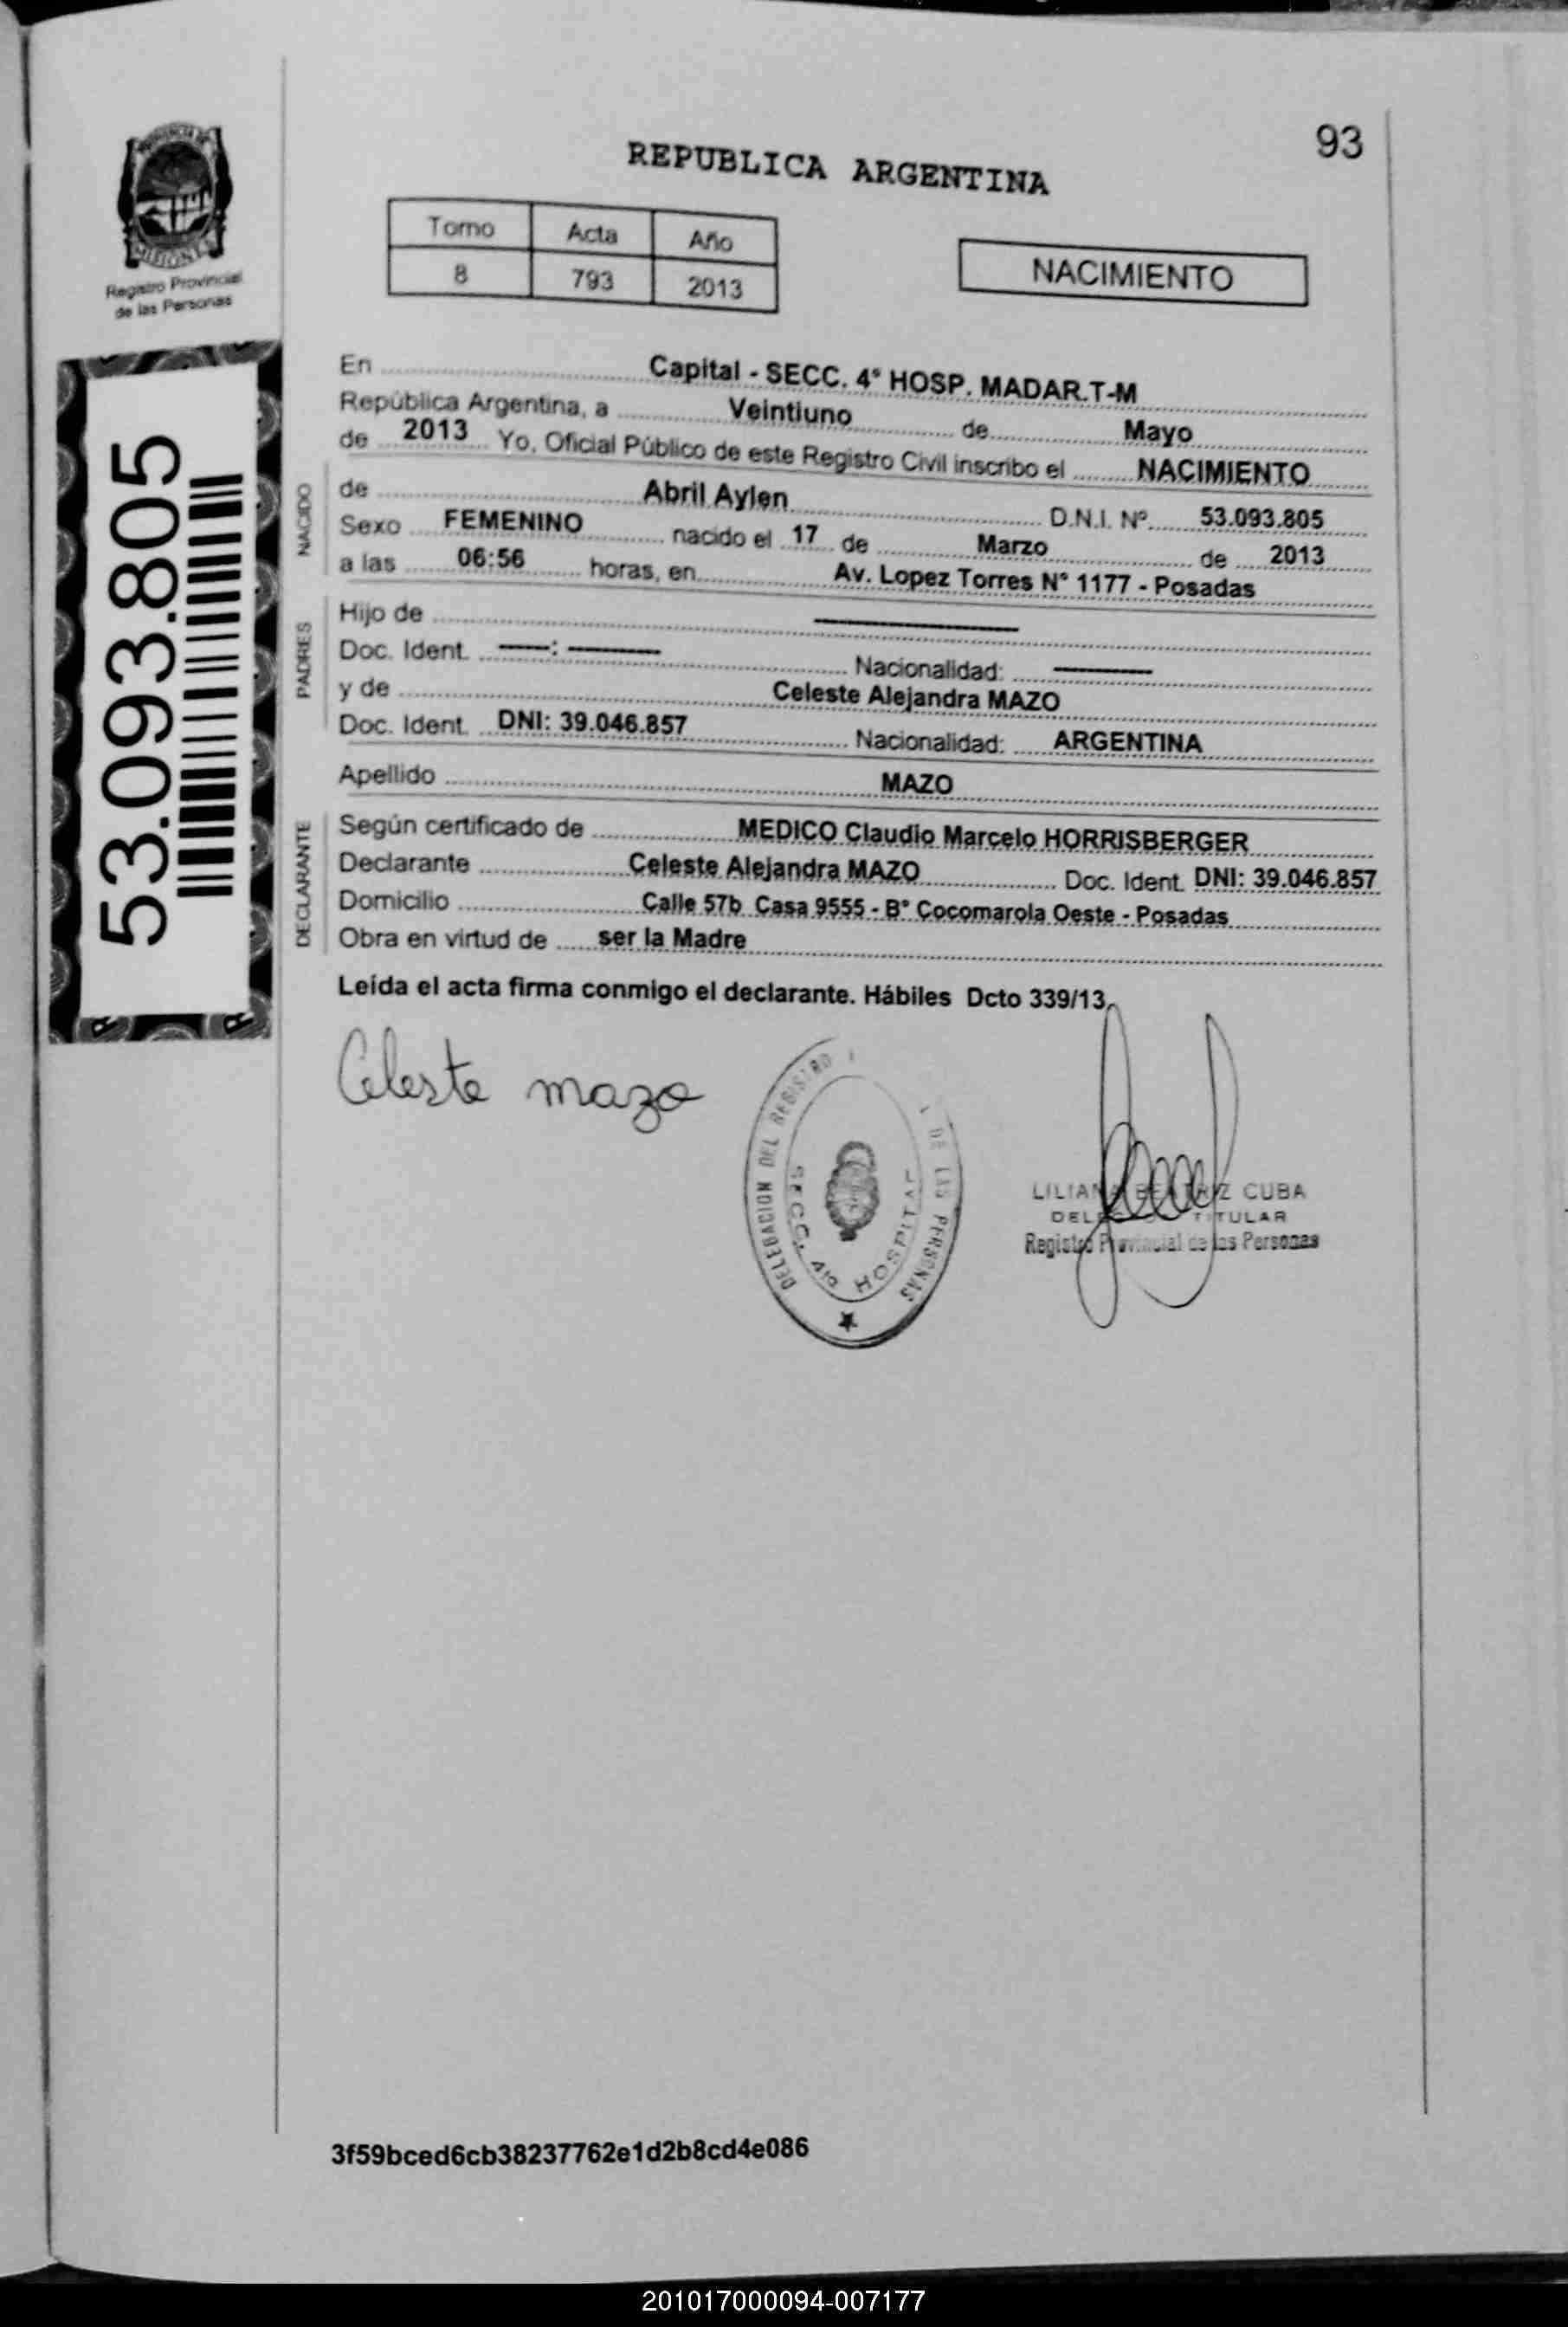 93
REPUBLICA ARGENTINA
PROVINCIA DE
MISIONES
Registro Provincial
de las Personas
Tomo Acta Año
8 793 2013
NACIMIENTO
53.093.805
En Capital - SECC. 4° HOSP. MADAR.T-M
República Argentina, a Veintiuno de Mayo
de 2013 Yo, Oficial Público de este Registro Civil inscribo el NACIMIENTO
NACIDO
de Abril Aylen D.N.I. Nº 53.093.805
Sexo FEMENINO nacido el 17 de Marzo de 2013
a las 06:56 horas, en Av. Lopez Torres N° 1177 - Posadas
PADRES
Hijo de
Doc. Ident. : Nacionalidad:
y de Celeste Alejandra MAZO
Doc. Ident. DNI: 39.046.857 Nacionalidad: ARGENTINA
Apellido MAZO
DECLARANTE
Según certificado de MEDICO Claudio Marcelo HORRISBERGER
Declarante Celeste Alejandra MAZO Doc. Ident. DNI: 39.046.857
Domicilio Calle 57b Casa 9555 - B° Cocomarola Oeste - Posadas
Obra en virtud de ser la Madre
Leída el acta firma conmigo el declarante. Hábiles Dcto 339/13
Celeste mazo
DELEGACION DEL REGISTRO DE LAS PERSONAS
SECC. 4ta HOSPITAL
LILIANA BEATRIZ CUBA
TITULAR
Registro Provincial de las Personas
3f59bced6cb38237762e1d2b8cd4e086
201017000094-007177